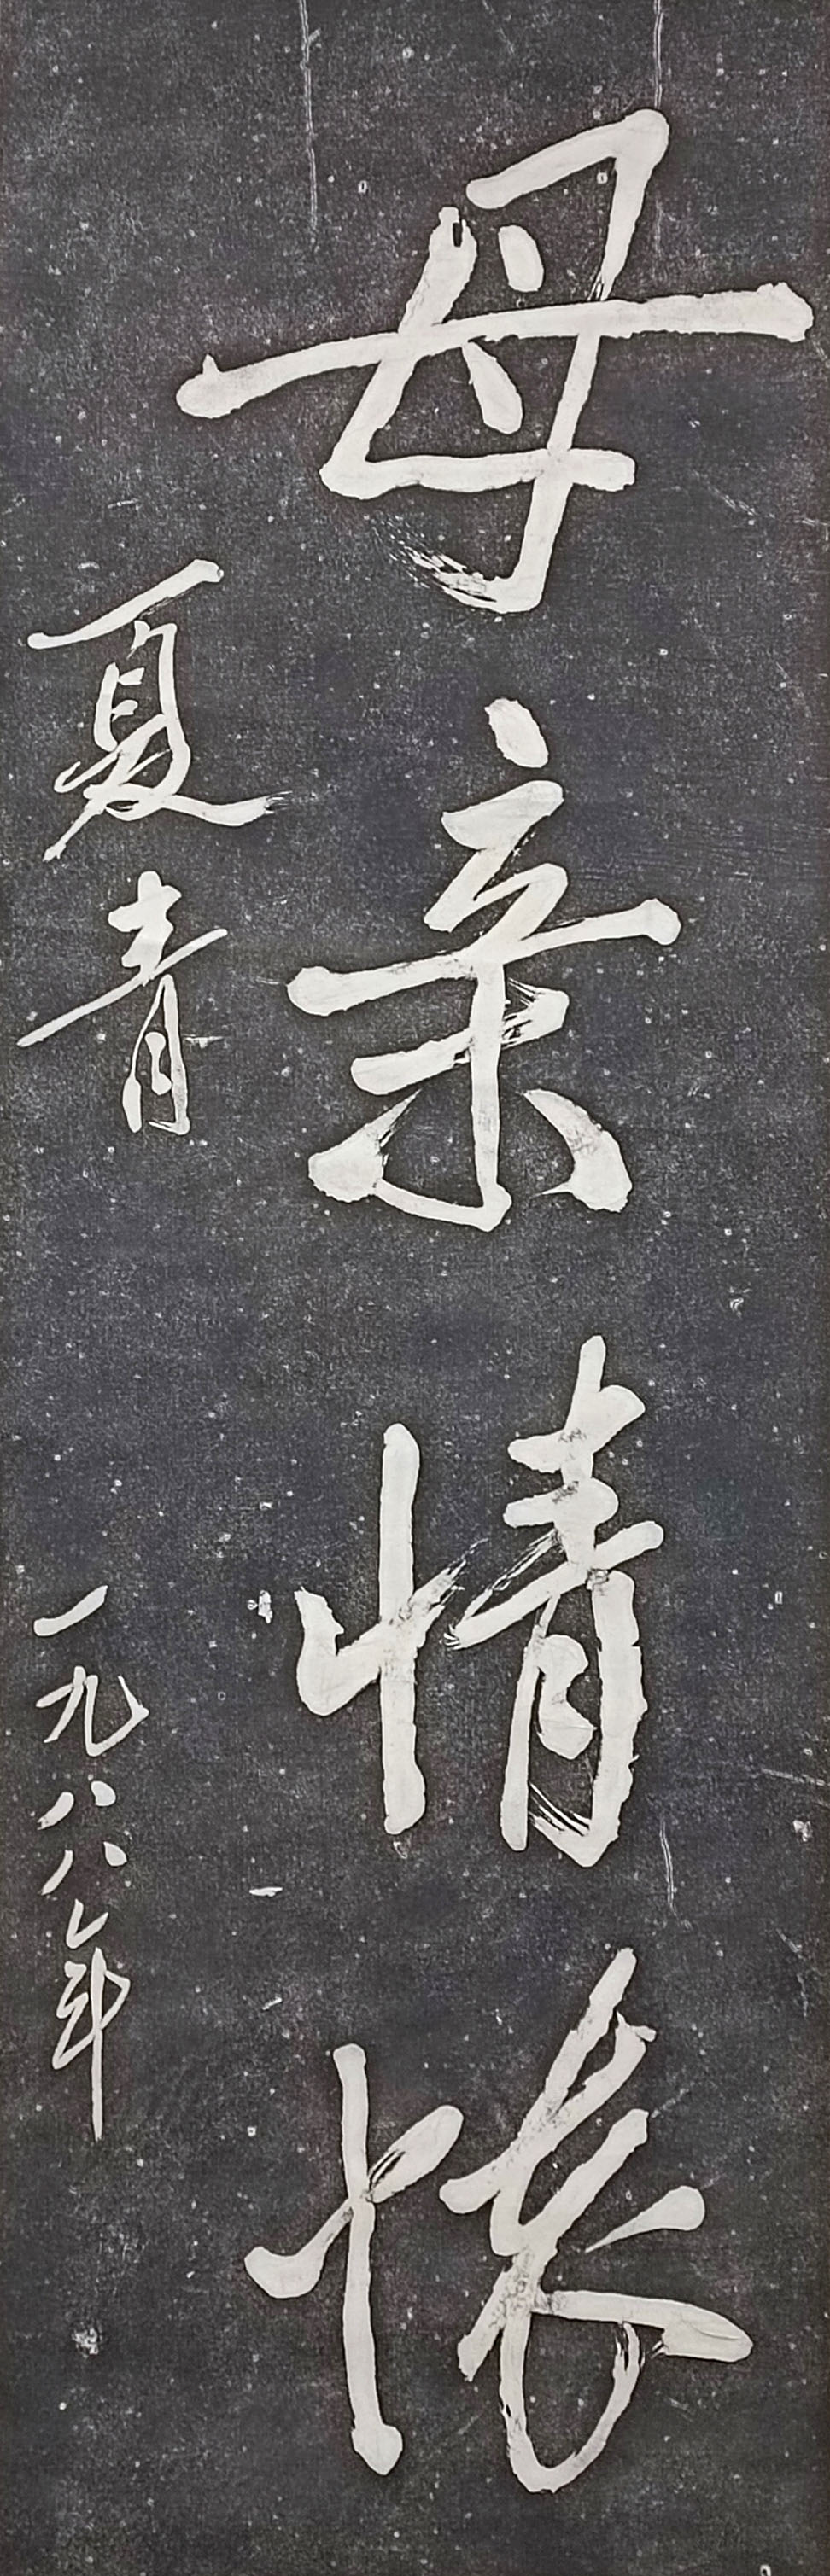 母亲情怀
夏青
一九八八年